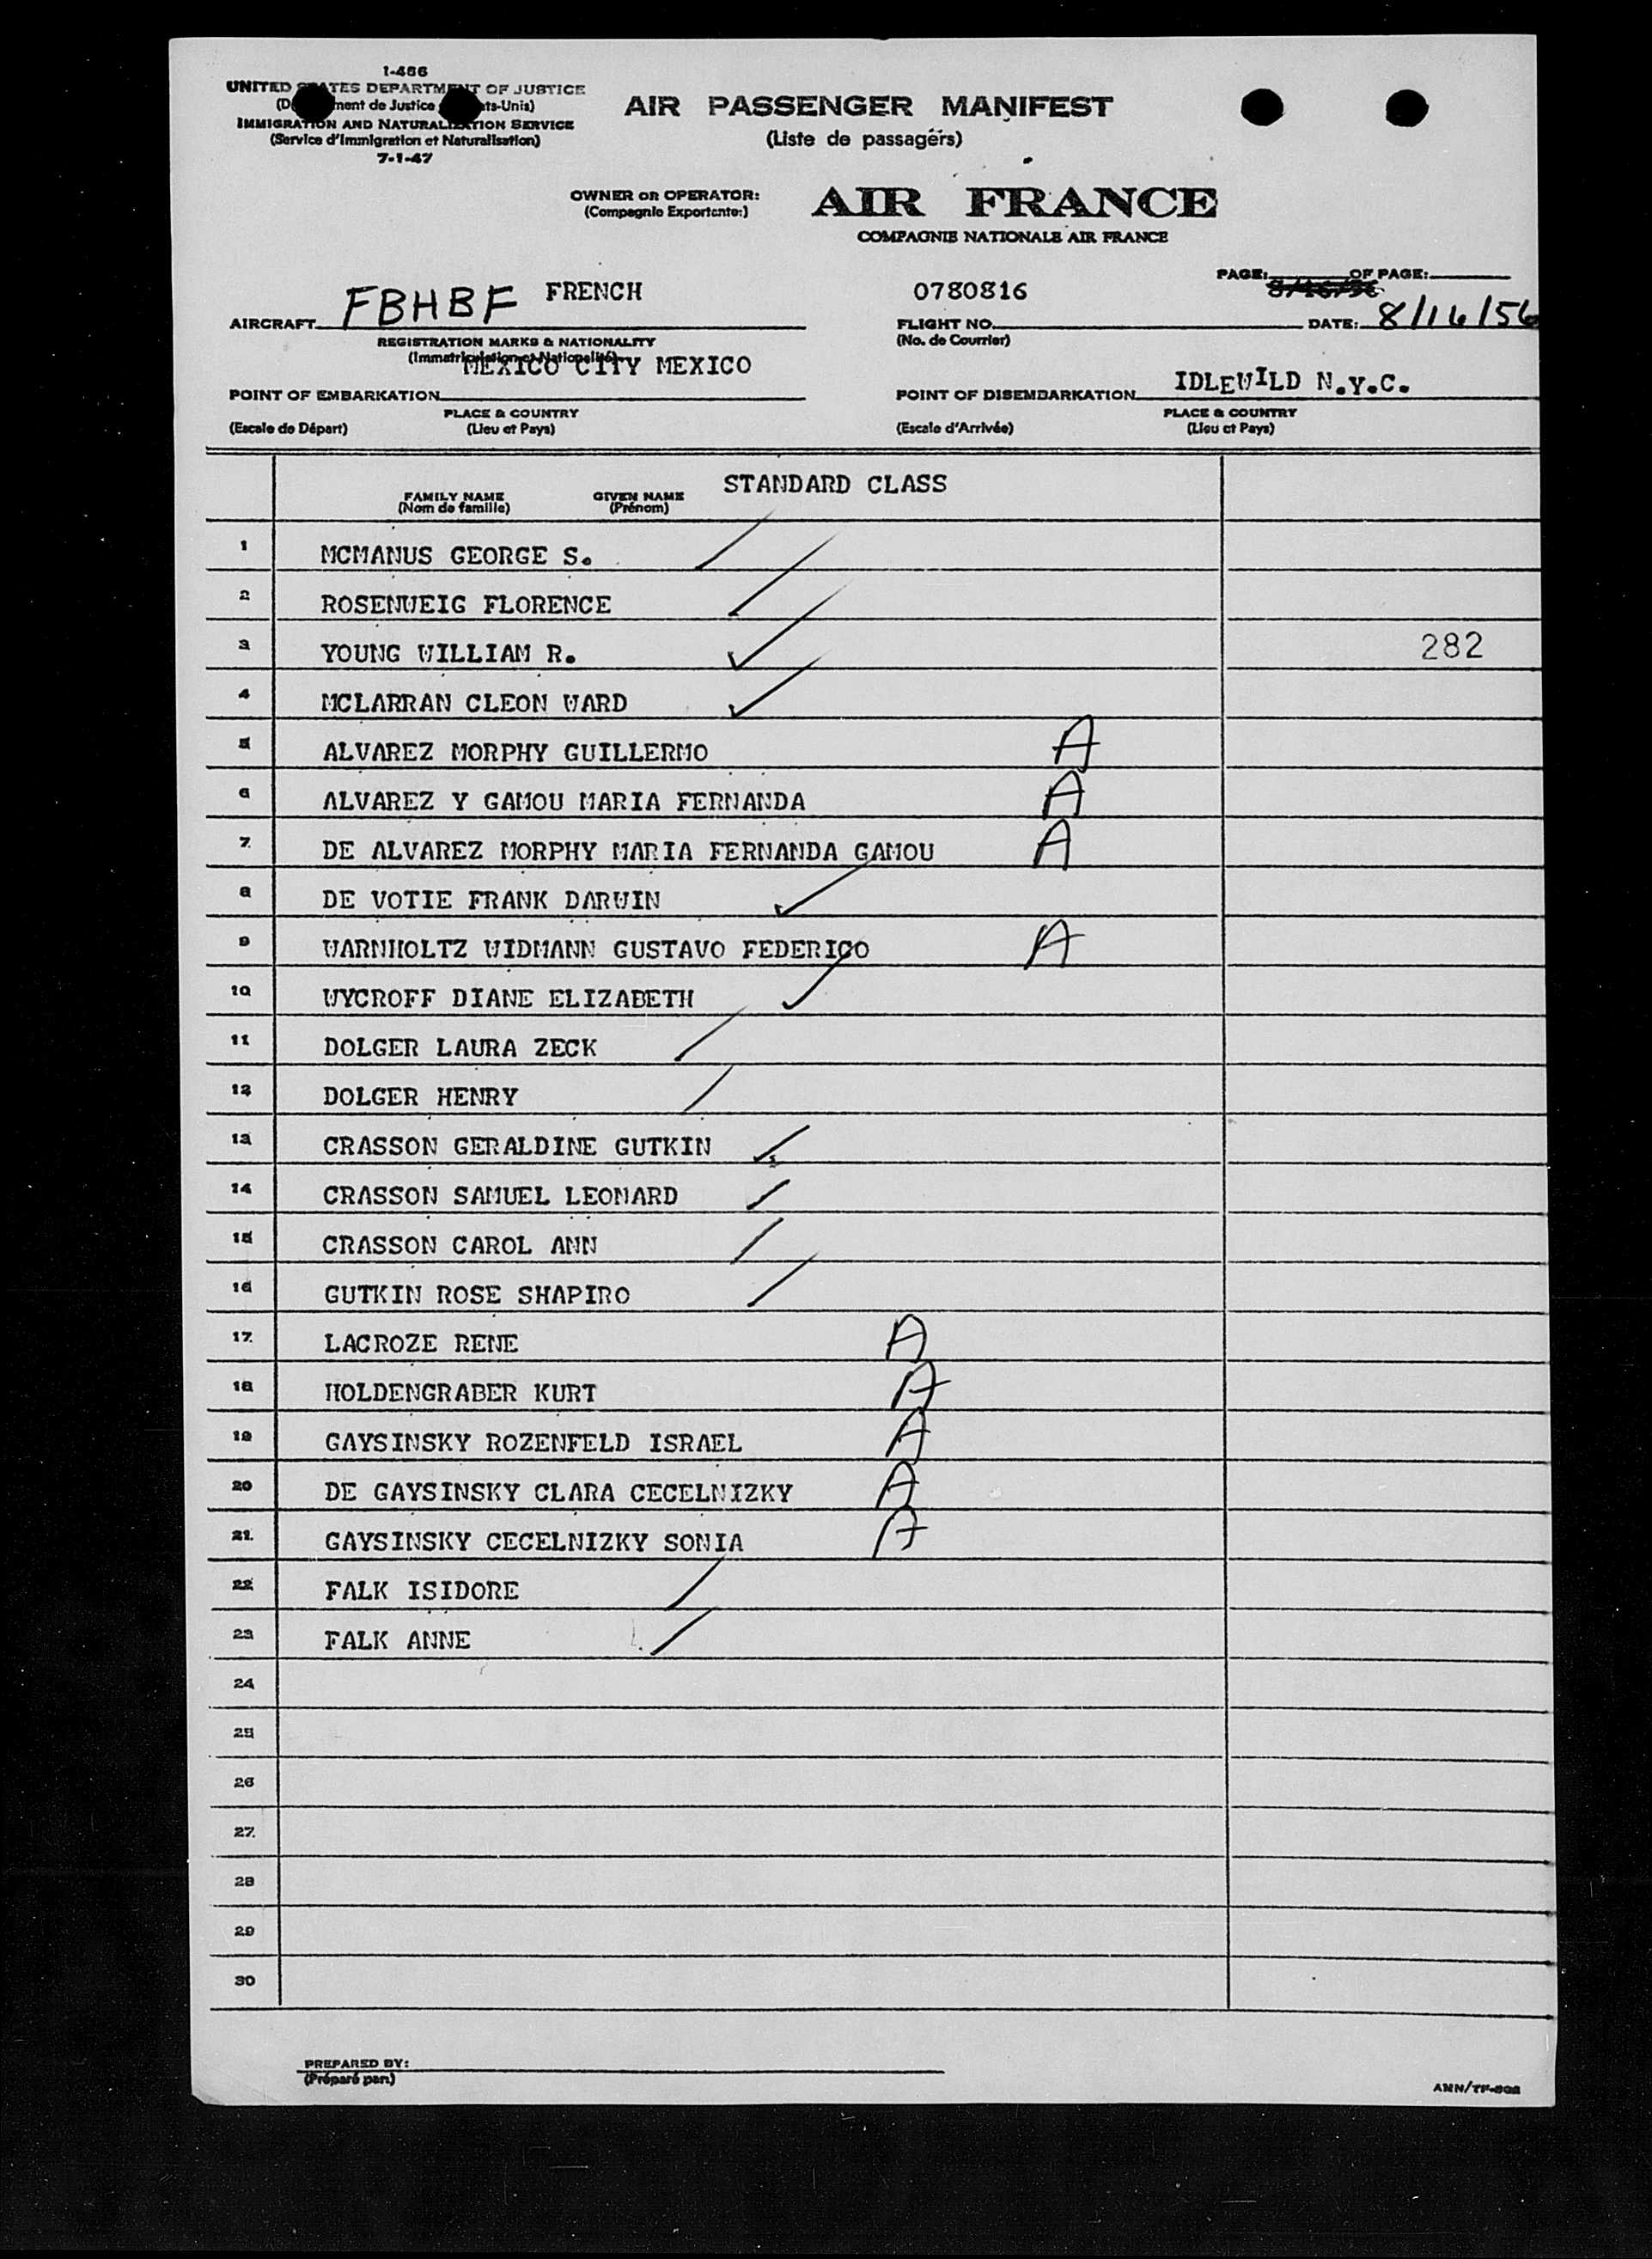 1-466
UNITED STATES DEPARTMENT OF JUSTICE
ment de Justice ts-Unis)
IMMIGRATION AND NATURALIZATION SERVICE
(Service d'Immigration et Naturalisation)
7-1-47
AIR PASSENGER MANIFEST
(Liste de passagérs)
OWNER OR OPERATOR:
(Compagnie Exportante:)
AIR FRANCE
COMPAGNIE NATIONALE AIR FRANCE
PAGE: OF PAGE:
8/16/56
AIRCRAFT FBHBF FRENCH
FLIGHT NO. 0780816
DATE: 8/16/56
REGISTRATION MARKS & NATIONALITY
(No. de Courrier)
(Immatriculation et Nationalité)
POINT OF EMBARKATION MEXICO CITY MEXICO
POINT OF DISEMBARKATION IDLEWILD N.Y.C.
PLACE & COUNTRY
PLACE & COUNTRY
(Escale de Départ) (Lieu et Pays)
(Escale d'Arrivée) (Lieu et Pays)
STANDARD CLASS
FAMILY NAME GIVEN NAME
(Nom de famille) (Prénom)
1 MCMANUS GEORGE S.
2 ROSENWEIG FLORENCE
3 YOUNG WILLIAM R. 282
4 MCLARRAN CLEON WARD
5 ALVAREZ MORPHY GUILLERMO A
6 ALVAREZ Y GAMOU MARIA FERNANDA A
7 DE ALVAREZ MORPHY MARIA FERNANDA GAMOU A
8 DE VOTIE FRANK DARWIN
9 WARNHOLTZ WIDMANN GUSTAVO FEDERICO A
10 WYCROFF DIANE ELIZABETH
11 DOLGER LAURA ZECK
12 DOLGER HENRY
13 CRASSON GERALDINE GUTKIN
14 CRASSON SAMUEL LEONARD
15 CRASSON CAROL ANN
16 GUTKIN ROSE SHAPIRO
17 LACROZE RENE A
18 HOLDENGRABER KURT A
19 GAYSINSKY ROZENFELD ISRAEL A
20 DE GAYSINSKY CLARA CECELNIZKY A
21 GAYSINSKY CECELNIZKY SONIA A
22 FALK ISIDORE
23 FALK ANNE
24
25
26
27
28
29
30
PREPARED BY:
(Préparé par:)